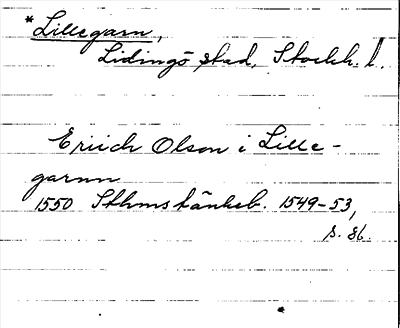 *Lillegarn,
Lidingö stad, Stockh. l.
Eriich Olson i Lille-
garnn
1550 Sthms tänkeb. 1549-53,
s. 86.
*